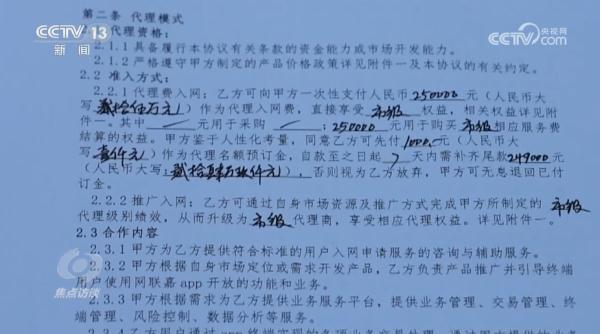 CCTV 13
新闻
CCTV.com 央视网
第二条 代理模式
代理资格:
2.1.1具备履行本协议有关条款的资金能力或市场开发能力。
2.1.2严格遵守甲方制定的产品价格政策详见附件一及本协议的有关约定。
2.2 准入方式:
2.2.1代理费入网:乙方可向甲方一次性支付人民币250000元(人民币大
写:贰拾伍万元)作为代理入网费,直接享受 市级 权益,相关权益详见附
件一。其中 / 元用于采购 / ;250000元用于购买市级相应服务费
结算的权益。甲方鉴于人性化考量,同意乙方可先付1000元(人民币大
写:壹仟元)作为代理名额预订金,自款至之日起 7 天内需补齐尾款249000元
(人民币大写:贰拾肆万玖仟元),否则视为乙方放弃,甲方可无息退回已付
订金。
2.2.2推广入网:乙方可通过自身市场资源及推广方式完成甲方所制定的 市级
代理级别绩效,从而升级为 市级 代理商,享受相应代理权益。详见附件一。
2.3合作内容
2.3.1甲方为乙方提供符合标准的用户入网申请服务的咨询与辅助服务。
2.3.2甲方根据自身市场定位或需求开发产品,乙方负责产品推广并引导终端
用户使用网联嘉app开放的功能和业务。
2.3.3甲方根据需求为乙方提供业务服务平台,提供业务管理、交易管理、终
端管理、风险控制、数据分析等服务。
焦点访谈